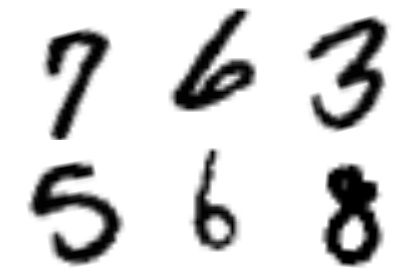 7 6 3
5 6 8